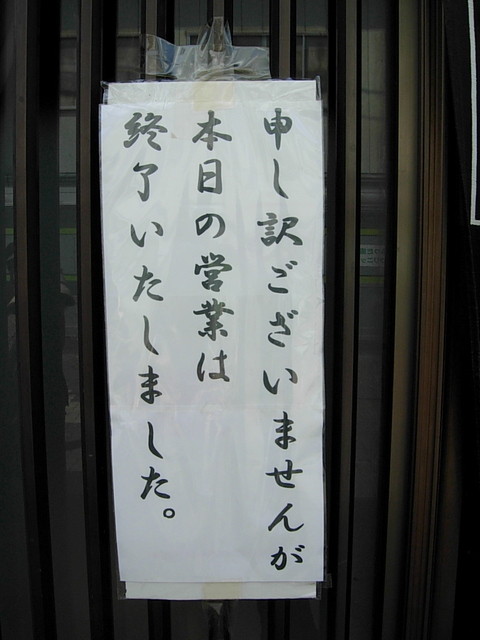 申し訳ございませんが
本日の営業は
終了いたしました。